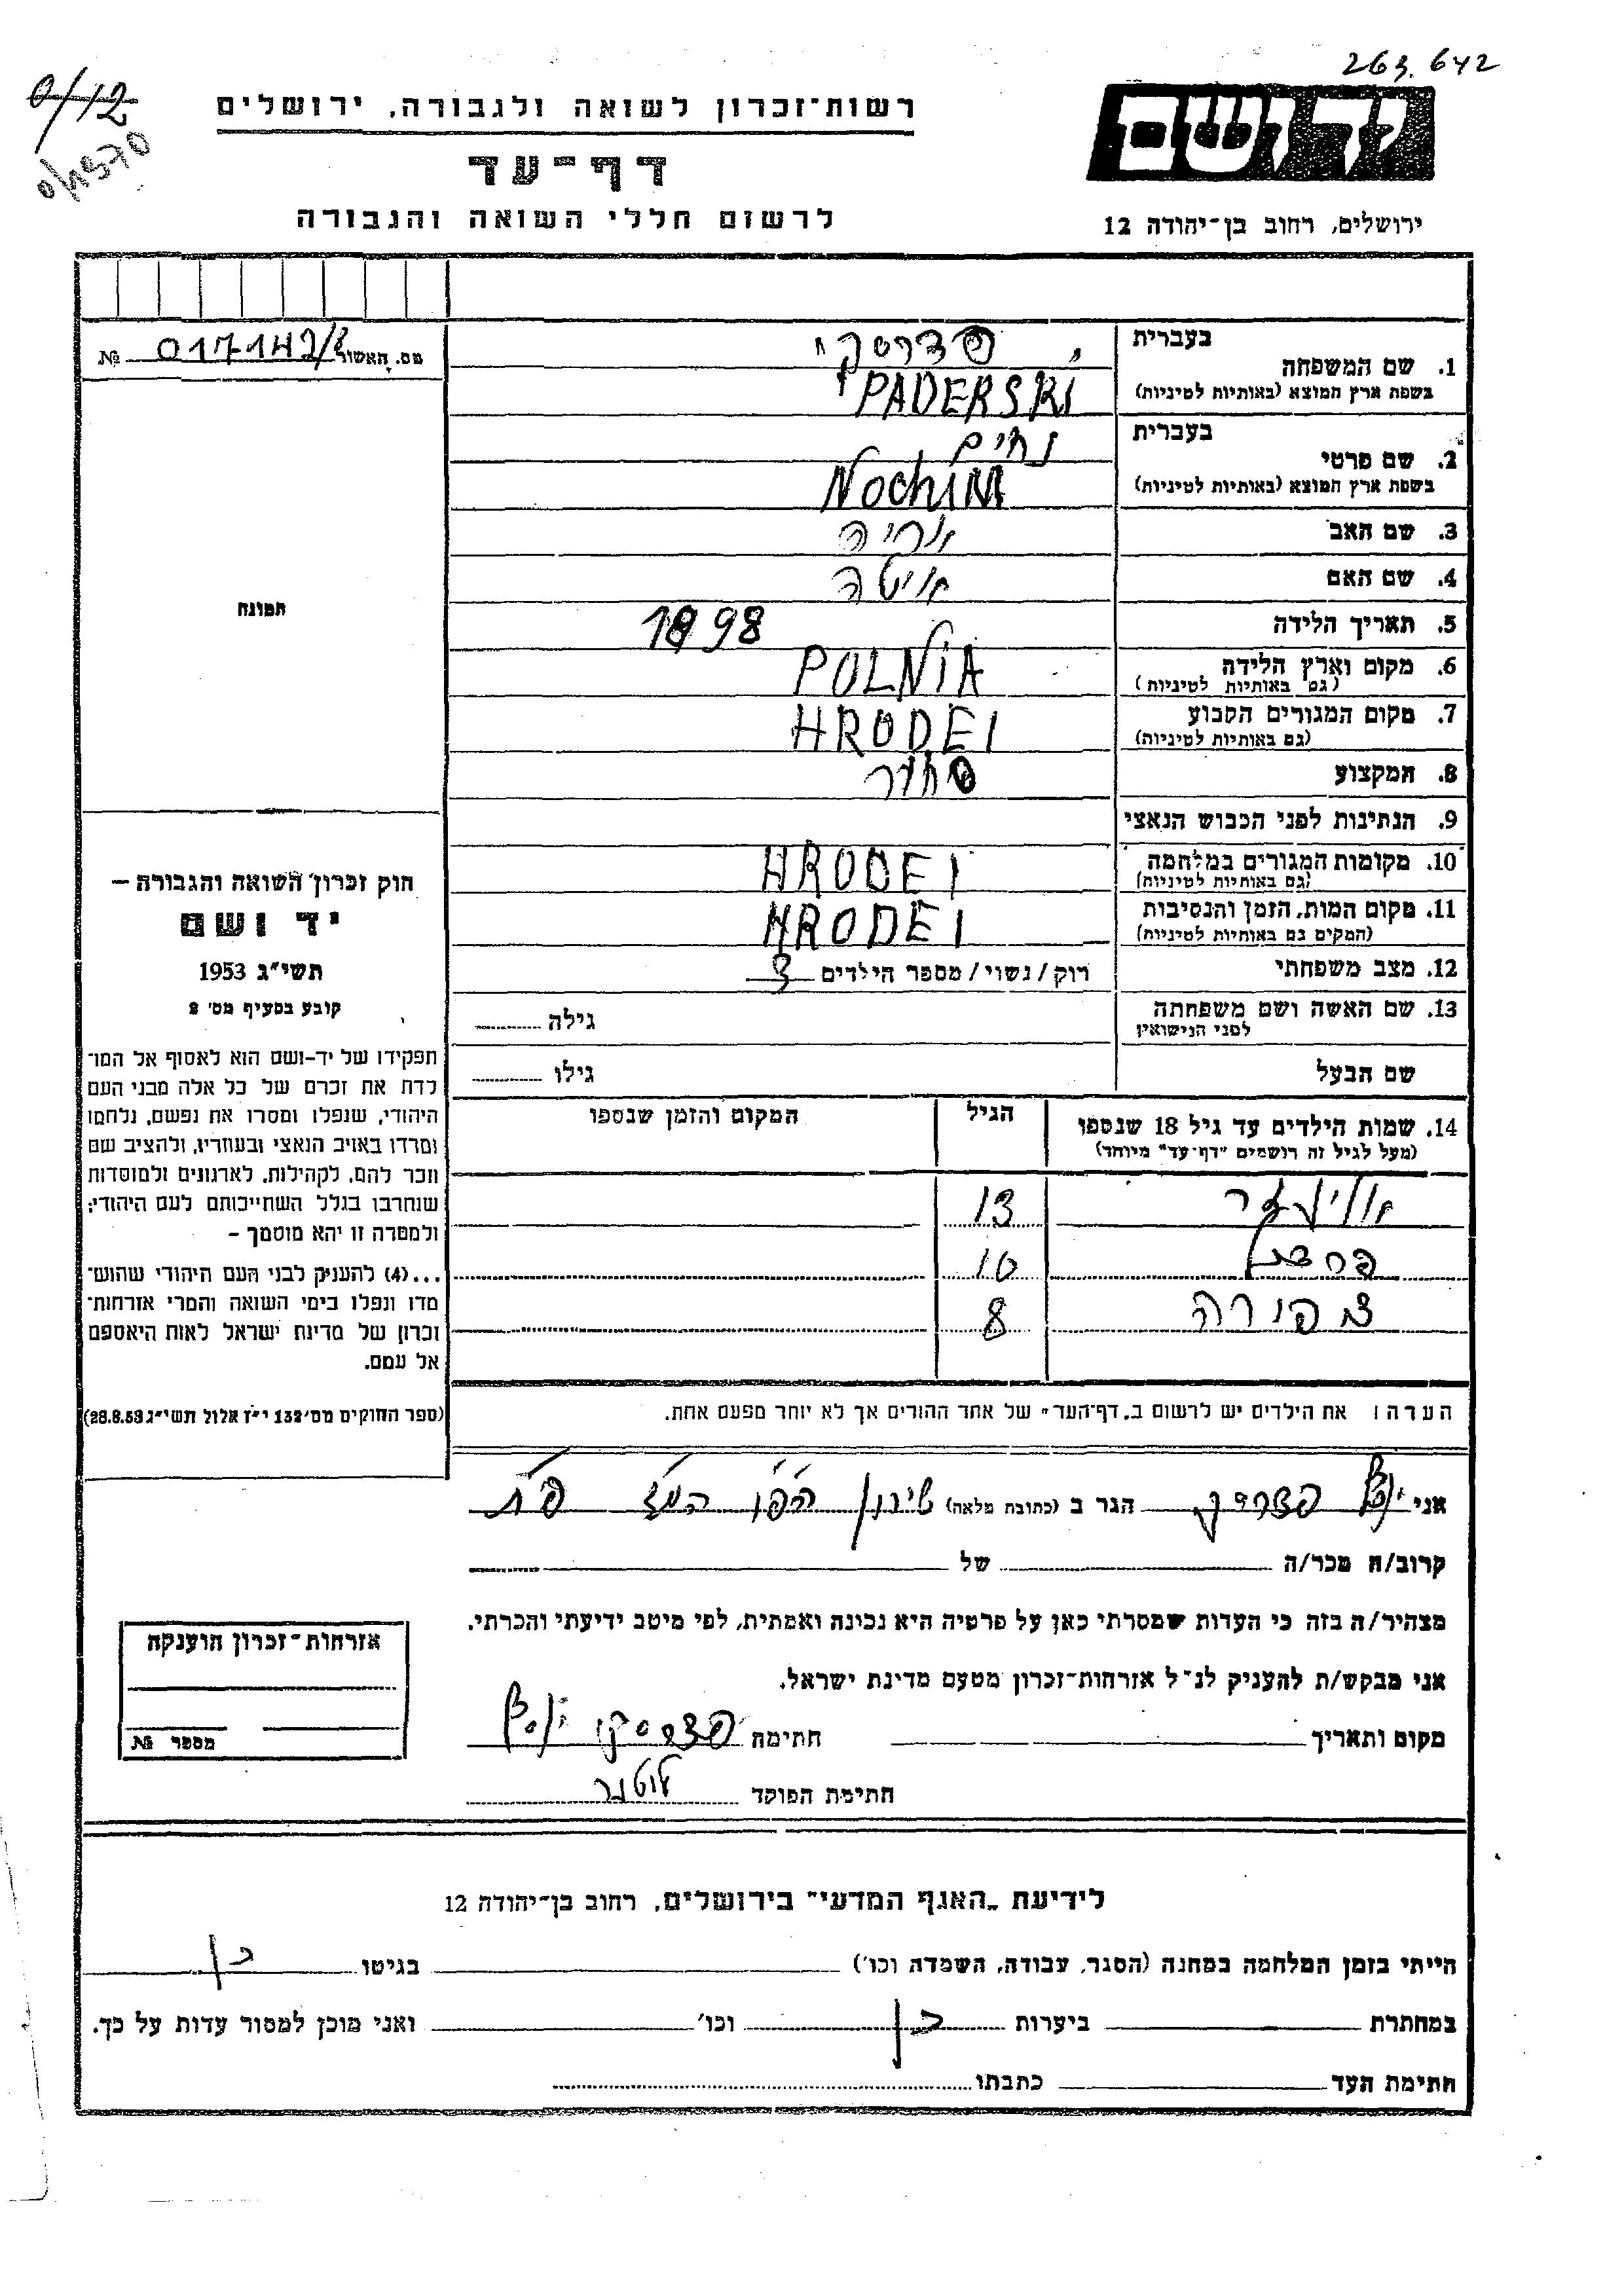 263.642
0/12
רשות־זכרון לשואה ולגבורה, ירושלים
יד ושם
דף־עד
לרשום חללי השואה והגבורה
ירושלים, רחוב בן־יהודה 12
בעברית
1. שם המשפחה
בשפת ארץ המוצא (באותיות לטיניות)
פדרסקי
PADERSKI
מס. האשור 017142/8 №
בעברית
2. שם פרטי
בשפת ארץ המוצא (באותיות לטיניות)
נחים
NochiM
3. שם האב אריה
4. שם האם איטה
תמונה
5. תאריך הלידה 1898
6. מקום וארץ הלידה POLNiA
(גם באותיות לטיניות)
7. מקום המגורים הקבוע HRODEI
(גם באותיות לטיניות)
8. המקצוע סוחר
9. הנתינות לפני הכבוש הנאצי
10. מקומות המגורים במלחמה HRODEI
(גם באותיות לטיניות)
11. מקום המות, הזמן והנסיבות HRODEI
(המקום גם באותיות לטיניות)
12. מצב משפחתי רוק/נשוי/מספר הילדים 3
13. שם האשה ושם משפחתה גילה
לפני הנישואין
שם הבעל גילו
חוק זכרון השואה והגבורה –
יד ושם
תשי״ג 1953
קובע בסעיף מס׳ 2
תפקידו של יד-ושם הוא לאסוף אל המו־
לדת את זכרם של כל אלה מבני העם
היהודי, שנפלו ומסרו את נפשם, נלחמו
ומרדו באויב הנאצי ובעוזריו, ולהציב שם
וזכר להם, לקהילות, לארגונים ולמוסדות
שנחרבו בגלל השתייכותם לעם היהודי;
ולמטרה זו יהא מוסמך –
...(4) להעניק לבני העם היהודי שהוש־
מדו ונפלו בימי השואה והמרי אזרחות־
זכרון של מדינת ישראל לאות היאספם
אל עמם.
(ספר החוקים מס׳ 132 י״ז אלול תשי״ג 28.8.53)
14. שמות הילדים עד גיל 18 שנספו הגיל המקום והזמן שנספו
(מעל לגיל זה רושמים "דף-עד" מיוחד)
אליעזר 13
10
צפורה 8
הערה: את הילדים יש לרשום ב„דף־העד״ של אחד ההורים אך לא יותר מפעם אחת.
אני פדרסקי הגר ב (כתובת מלאה)
קרוב/ה מכר/ה של
מצהיר/ה בזה כי העדות שמסרתי כאן על פרטיה היא נכונה ואמתית, לפי מיטב ידיעתי והכרתי.
אני מבקש/ת להעניק לנ״ל אזרחות־זכרון מטעם מדינת ישראל.
מקום ותאריך חתימה פדרסקי
חתימת הפוקד
אזרחות־זכרון הוענקה
מספר №
לידיעת „האגף המדעי״ בירושלים, רחוב בן־יהודה 12
הייתי בזמן המלחמה במחנה (הסגר, עבודה, השמדה וכו׳) בגיטו כן
במחתרת ביערות כן וכו׳ ואני מוכן למסור עדות על כך.
חתימת העד כתבתו